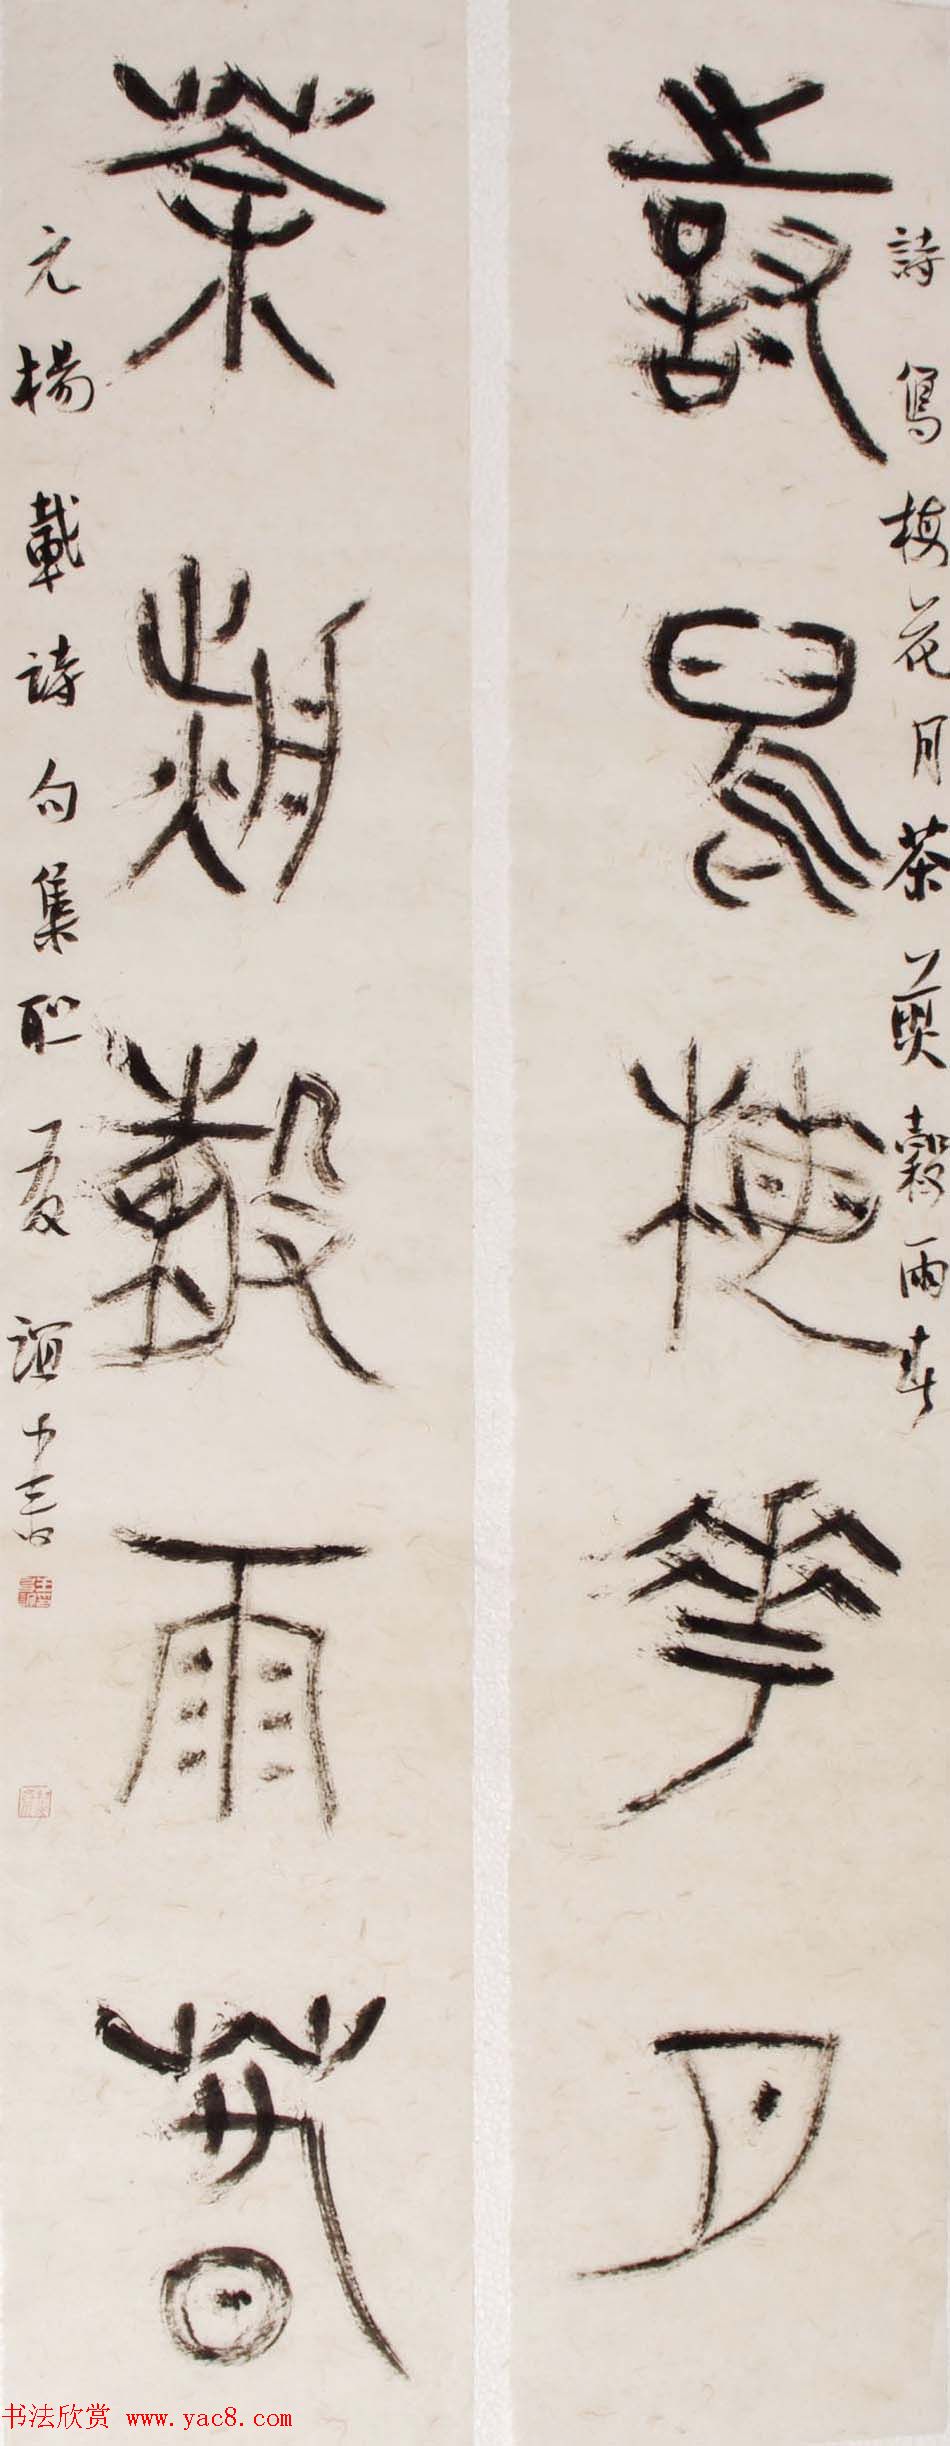 詩寫梅花月
茶煎穀雨春
詩寫梅花月茶煎穀雨春
元楊載詩句集聯
书法欣赏 www.yac8.com